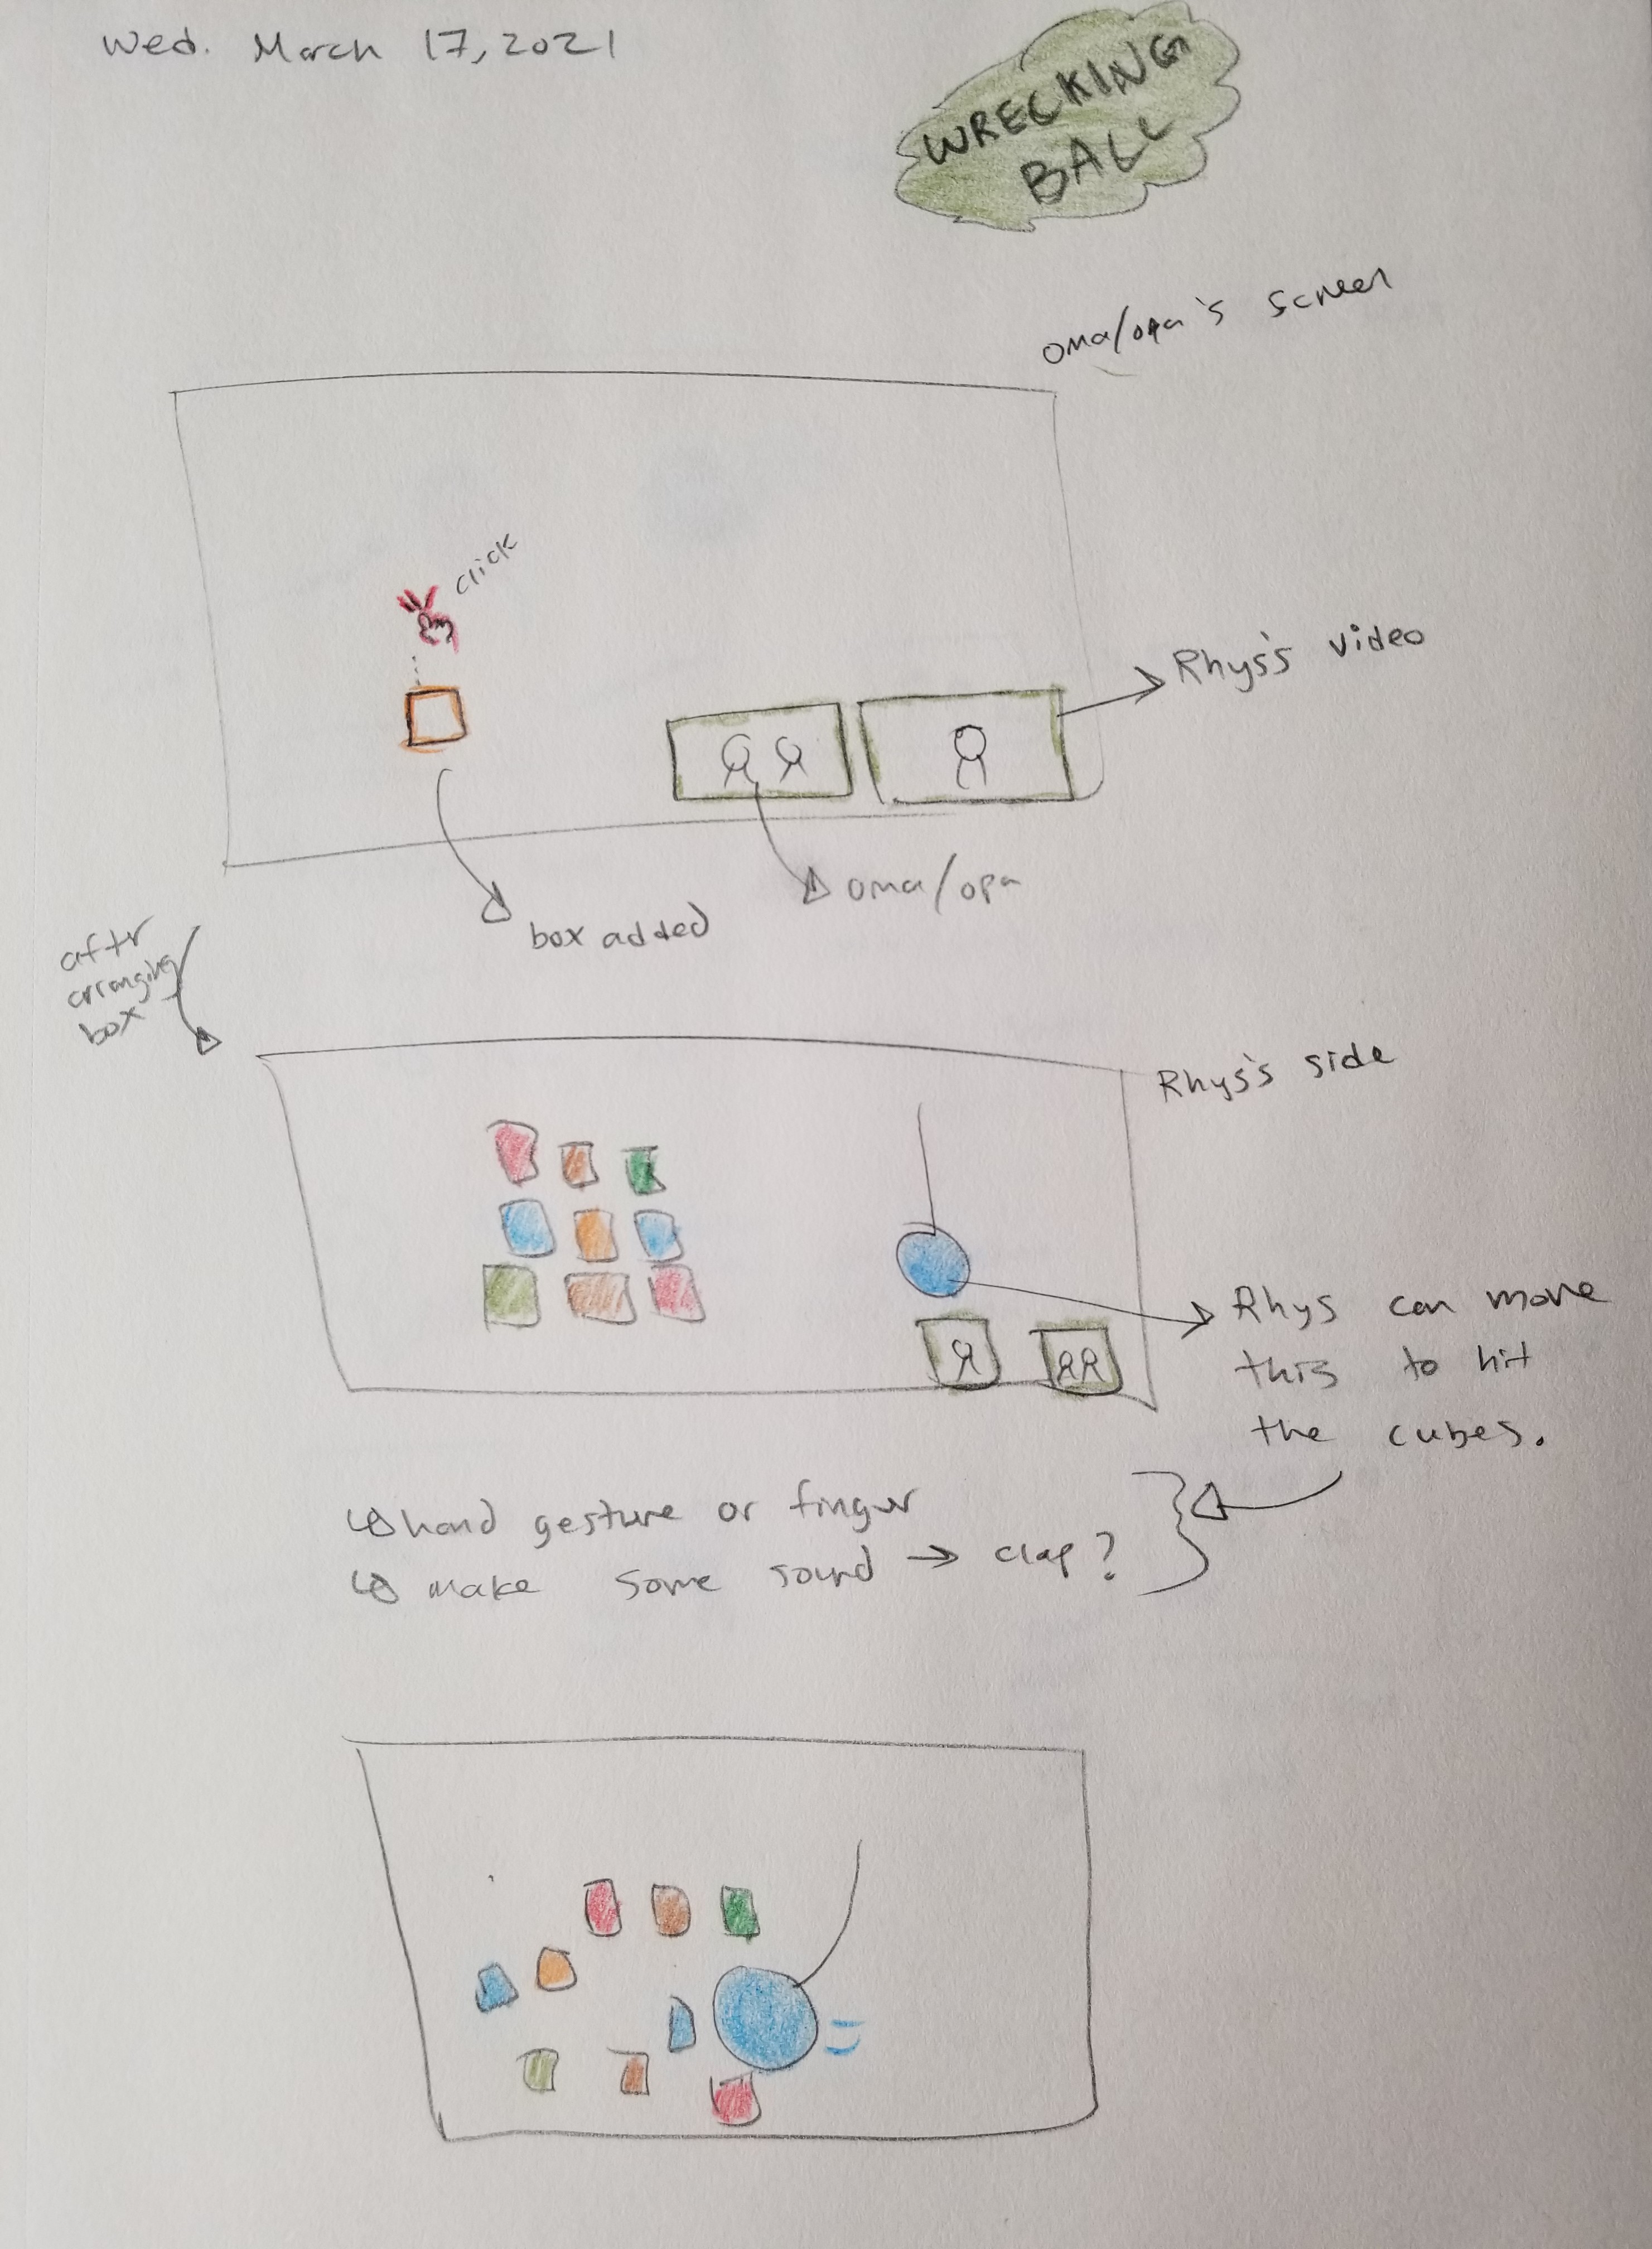 Wed. March 17, 2021
WRECKING
BALL
oma/opa's screen
click
Rhys's video
oma/opa
box added
aftr
arranging
box
Rhys's side
Rhys can move
this to hit
the cubes.
hand gesture or finger
make some sound → clap?